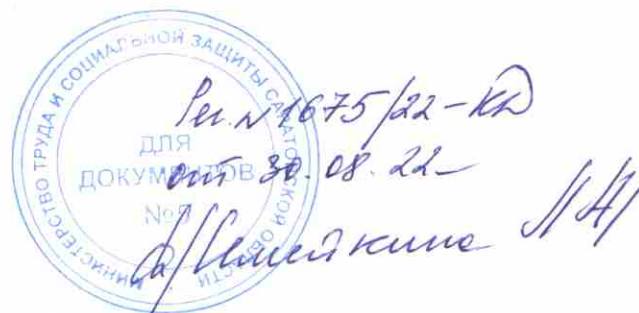 МИНИСТЕРСТВО ТРУДА И СОЦИАЛЬНОЙ ЗАЩИТЫ САРАТОВСКОЙ ОБЛАСТИ
ДЛЯ
ДОКУМЕНТОВ
Рег. № 1675/22-КД
от 30.08.22